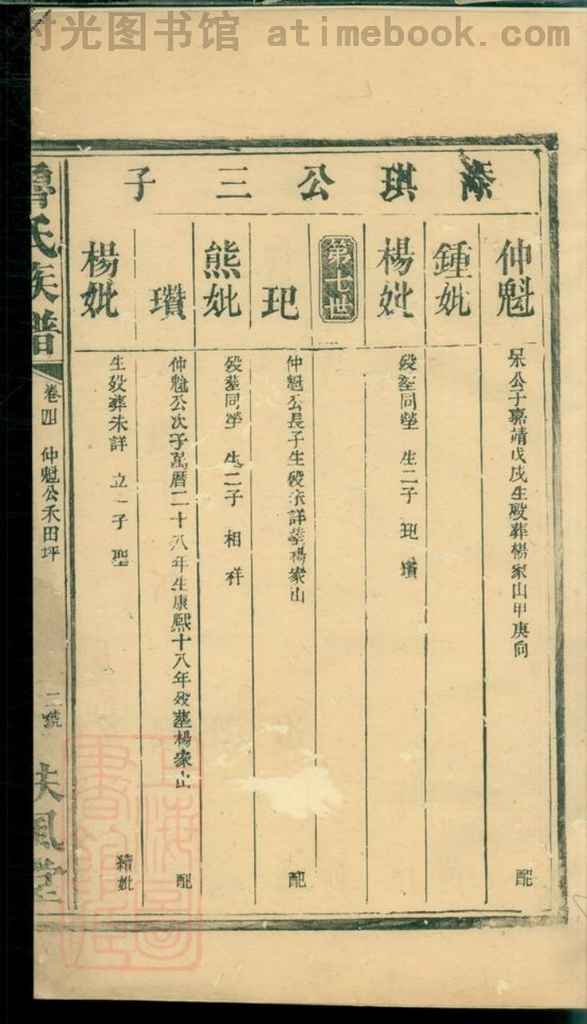 时光图书馆 atimebook.com
琪公三子
仲魁
呆公子嘉靖戊戌生歿葬楊家山甲庚向 配
鍾妣
楊妣
歿塟同塋 生二子 玘 瓚
第七世
玘
仲魁公長子生歿未詳塟楊家山 配
熊妣
歿塟同塋 生二子 相 祥
瓚
仲魁公次子萬曆二十八年生康熙十八年歿塟楊家山 配
楊妣
生歿葬未詳 立一子 聖 猜妣
魯氏族譜
卷四 仲魁公禾田坪
二號
扶風堂